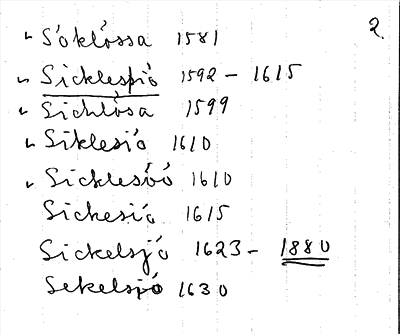 2
Sóklóssa 1581
Sicklespió 1592 - 1615
Sichlósa 1599
Siklesió 1610
Sicklesöó 1610
Sickesió 1615
Sickelsjó 1623 - 1880
Sekelspó 1630